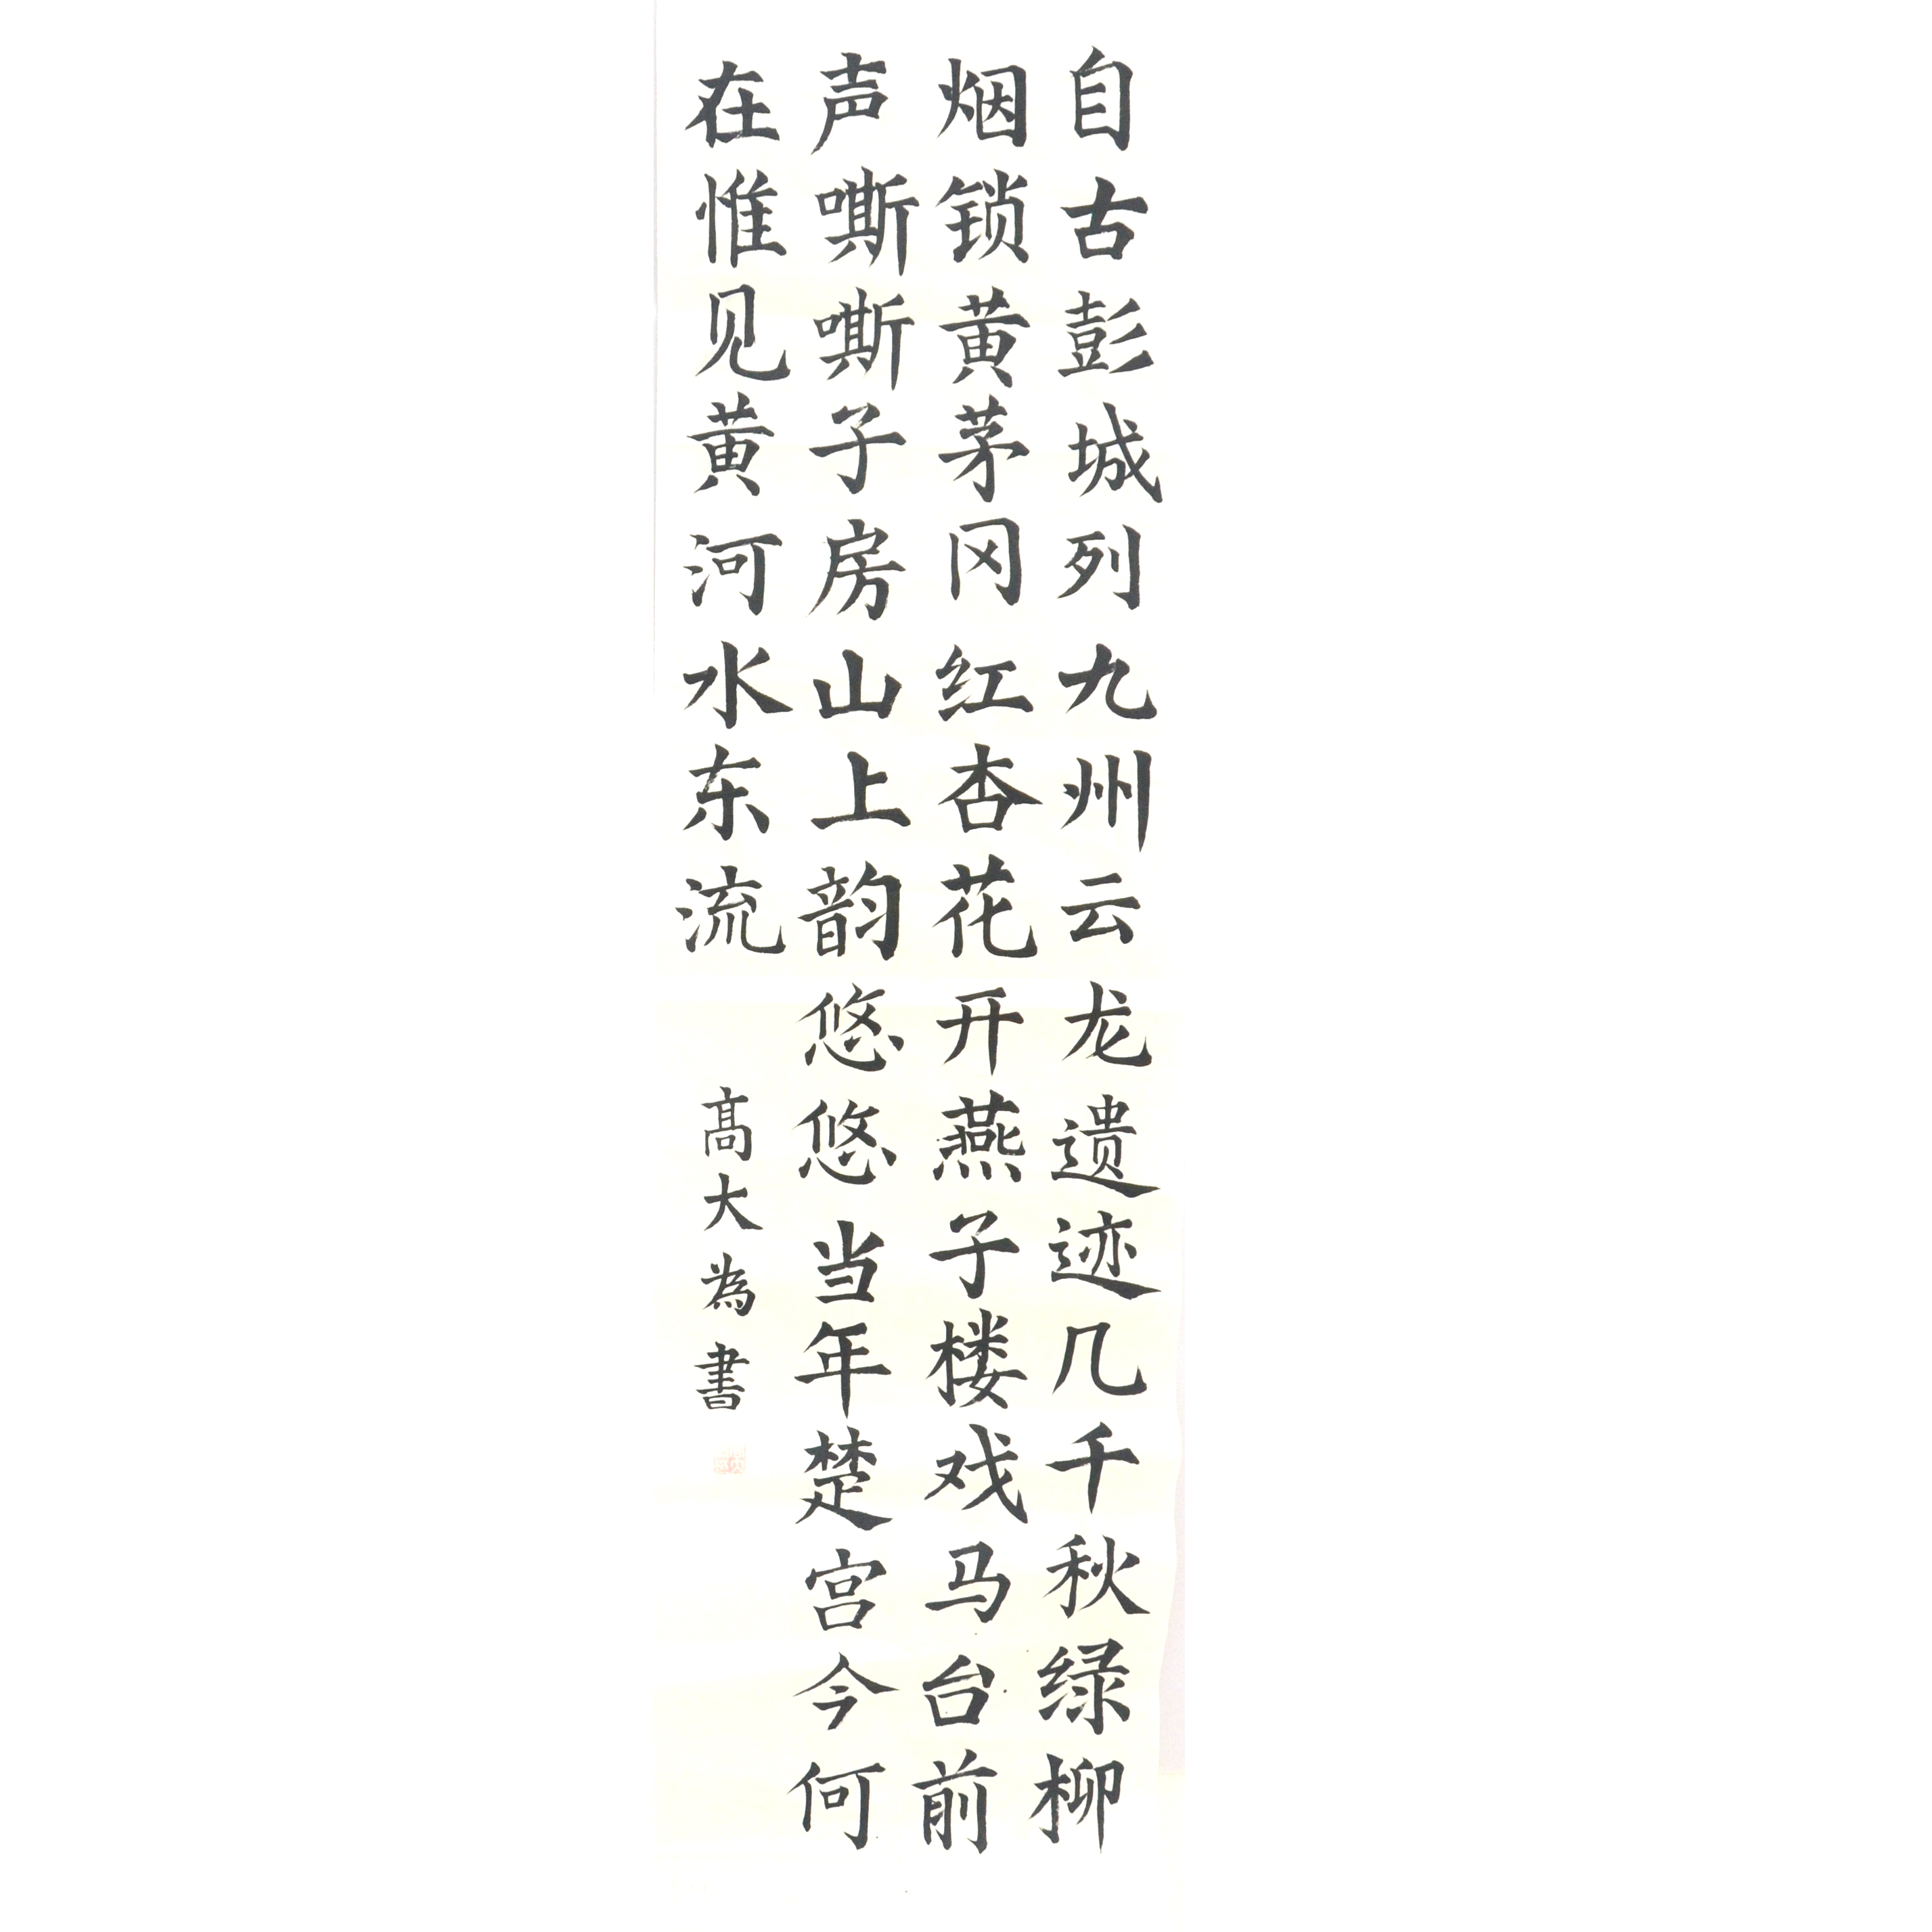 自古彭城列九州云龙遗迹几千秋绿柳
烟锁黄茅冈红杏花开燕子楼戏马台前
声嘶嘶子房山上韵悠悠当年楚宫今何
在惟见黄河水东流
高大為書